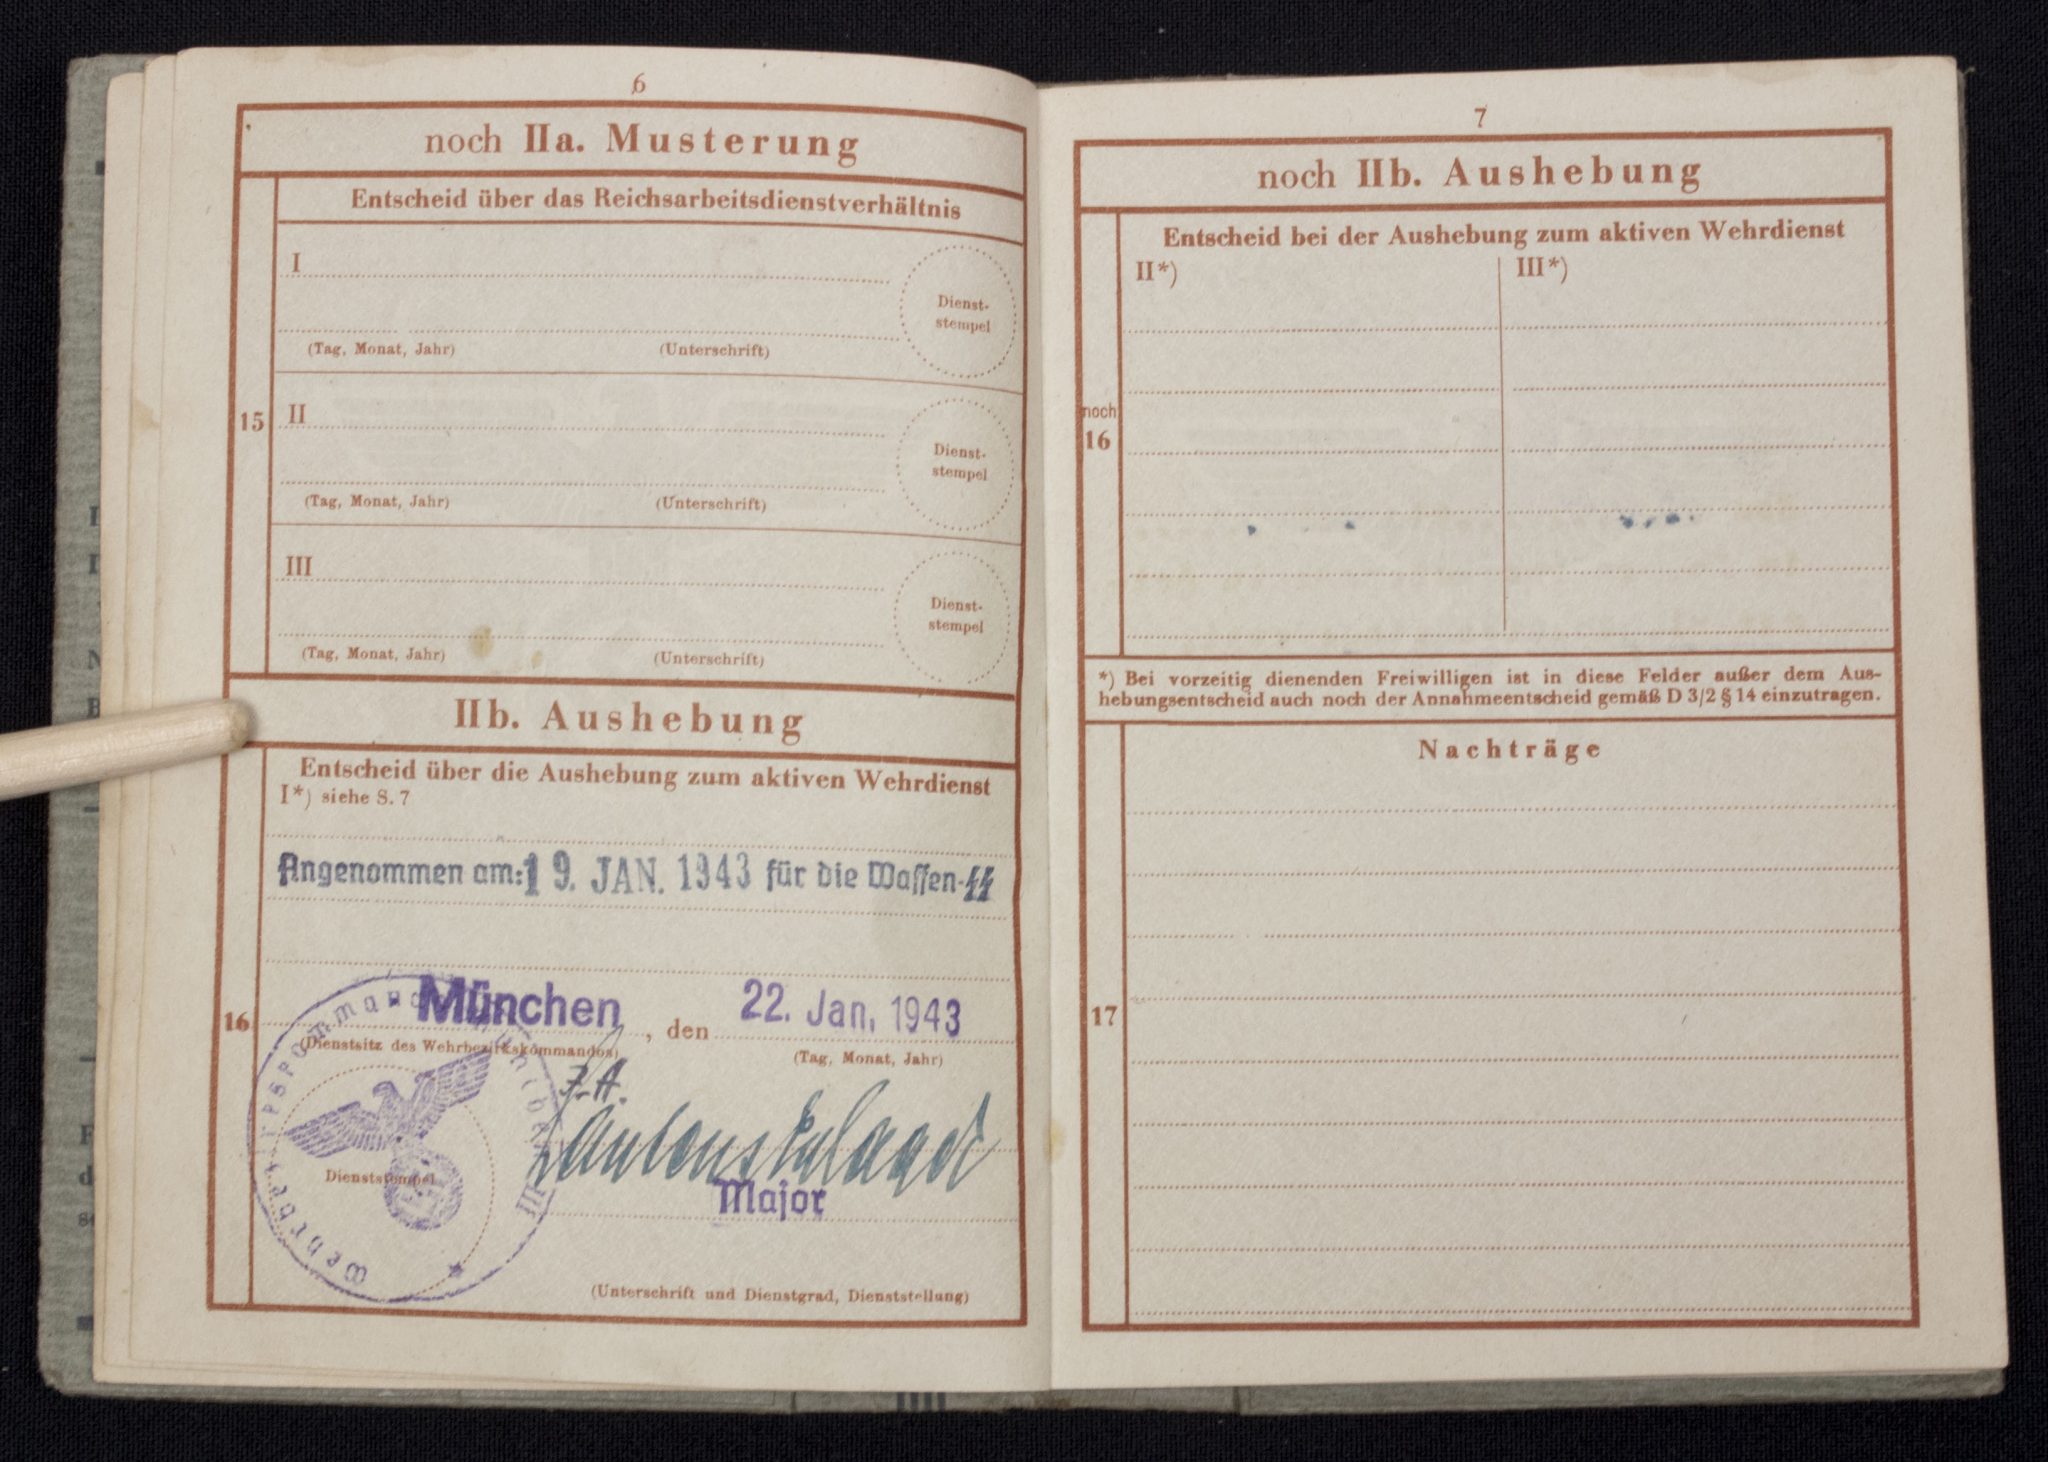 6
noch IIa. Musterung
Entscheid über das Reichsarbeitsdienstverhältnis
15
I
Dienst-
stempel
(Tag, Monat, Jahr) (Unterschrift)
II
Dienst-
stempel
(Tag, Monat, Jahr) (Unterschrift)
III
Dienst-
stempel
(Tag, Monat, Jahr) (Unterschrift)
IIb. Aushebung
Entscheid über die Aushebung zum aktiven Wehrdienst
I*) siehe S. 7
Angenommen am: 19. JAN. 1943 für die Waffen-SS
16
München, den 22. Jan. 1943
(Dienstsitz des Wehrbezirkskommandos) (Tag, Monat, Jahr)
I.A.
Dienststempel
Major
(Unterschrift und Dienstgrad, Dienststellung)
7
noch IIb. Aushebung
Entscheid bei der Aushebung zum aktiven Wehrdienst
II*) III*)
noch
16
*) Bei vorzeitig dienenden Freiwilligen ist in diese Felder außer dem Aus-
hebungsentscheid auch noch der Annahmeentscheid gemäß D 3/2 § 14 einzutragen.
Nachträge
17